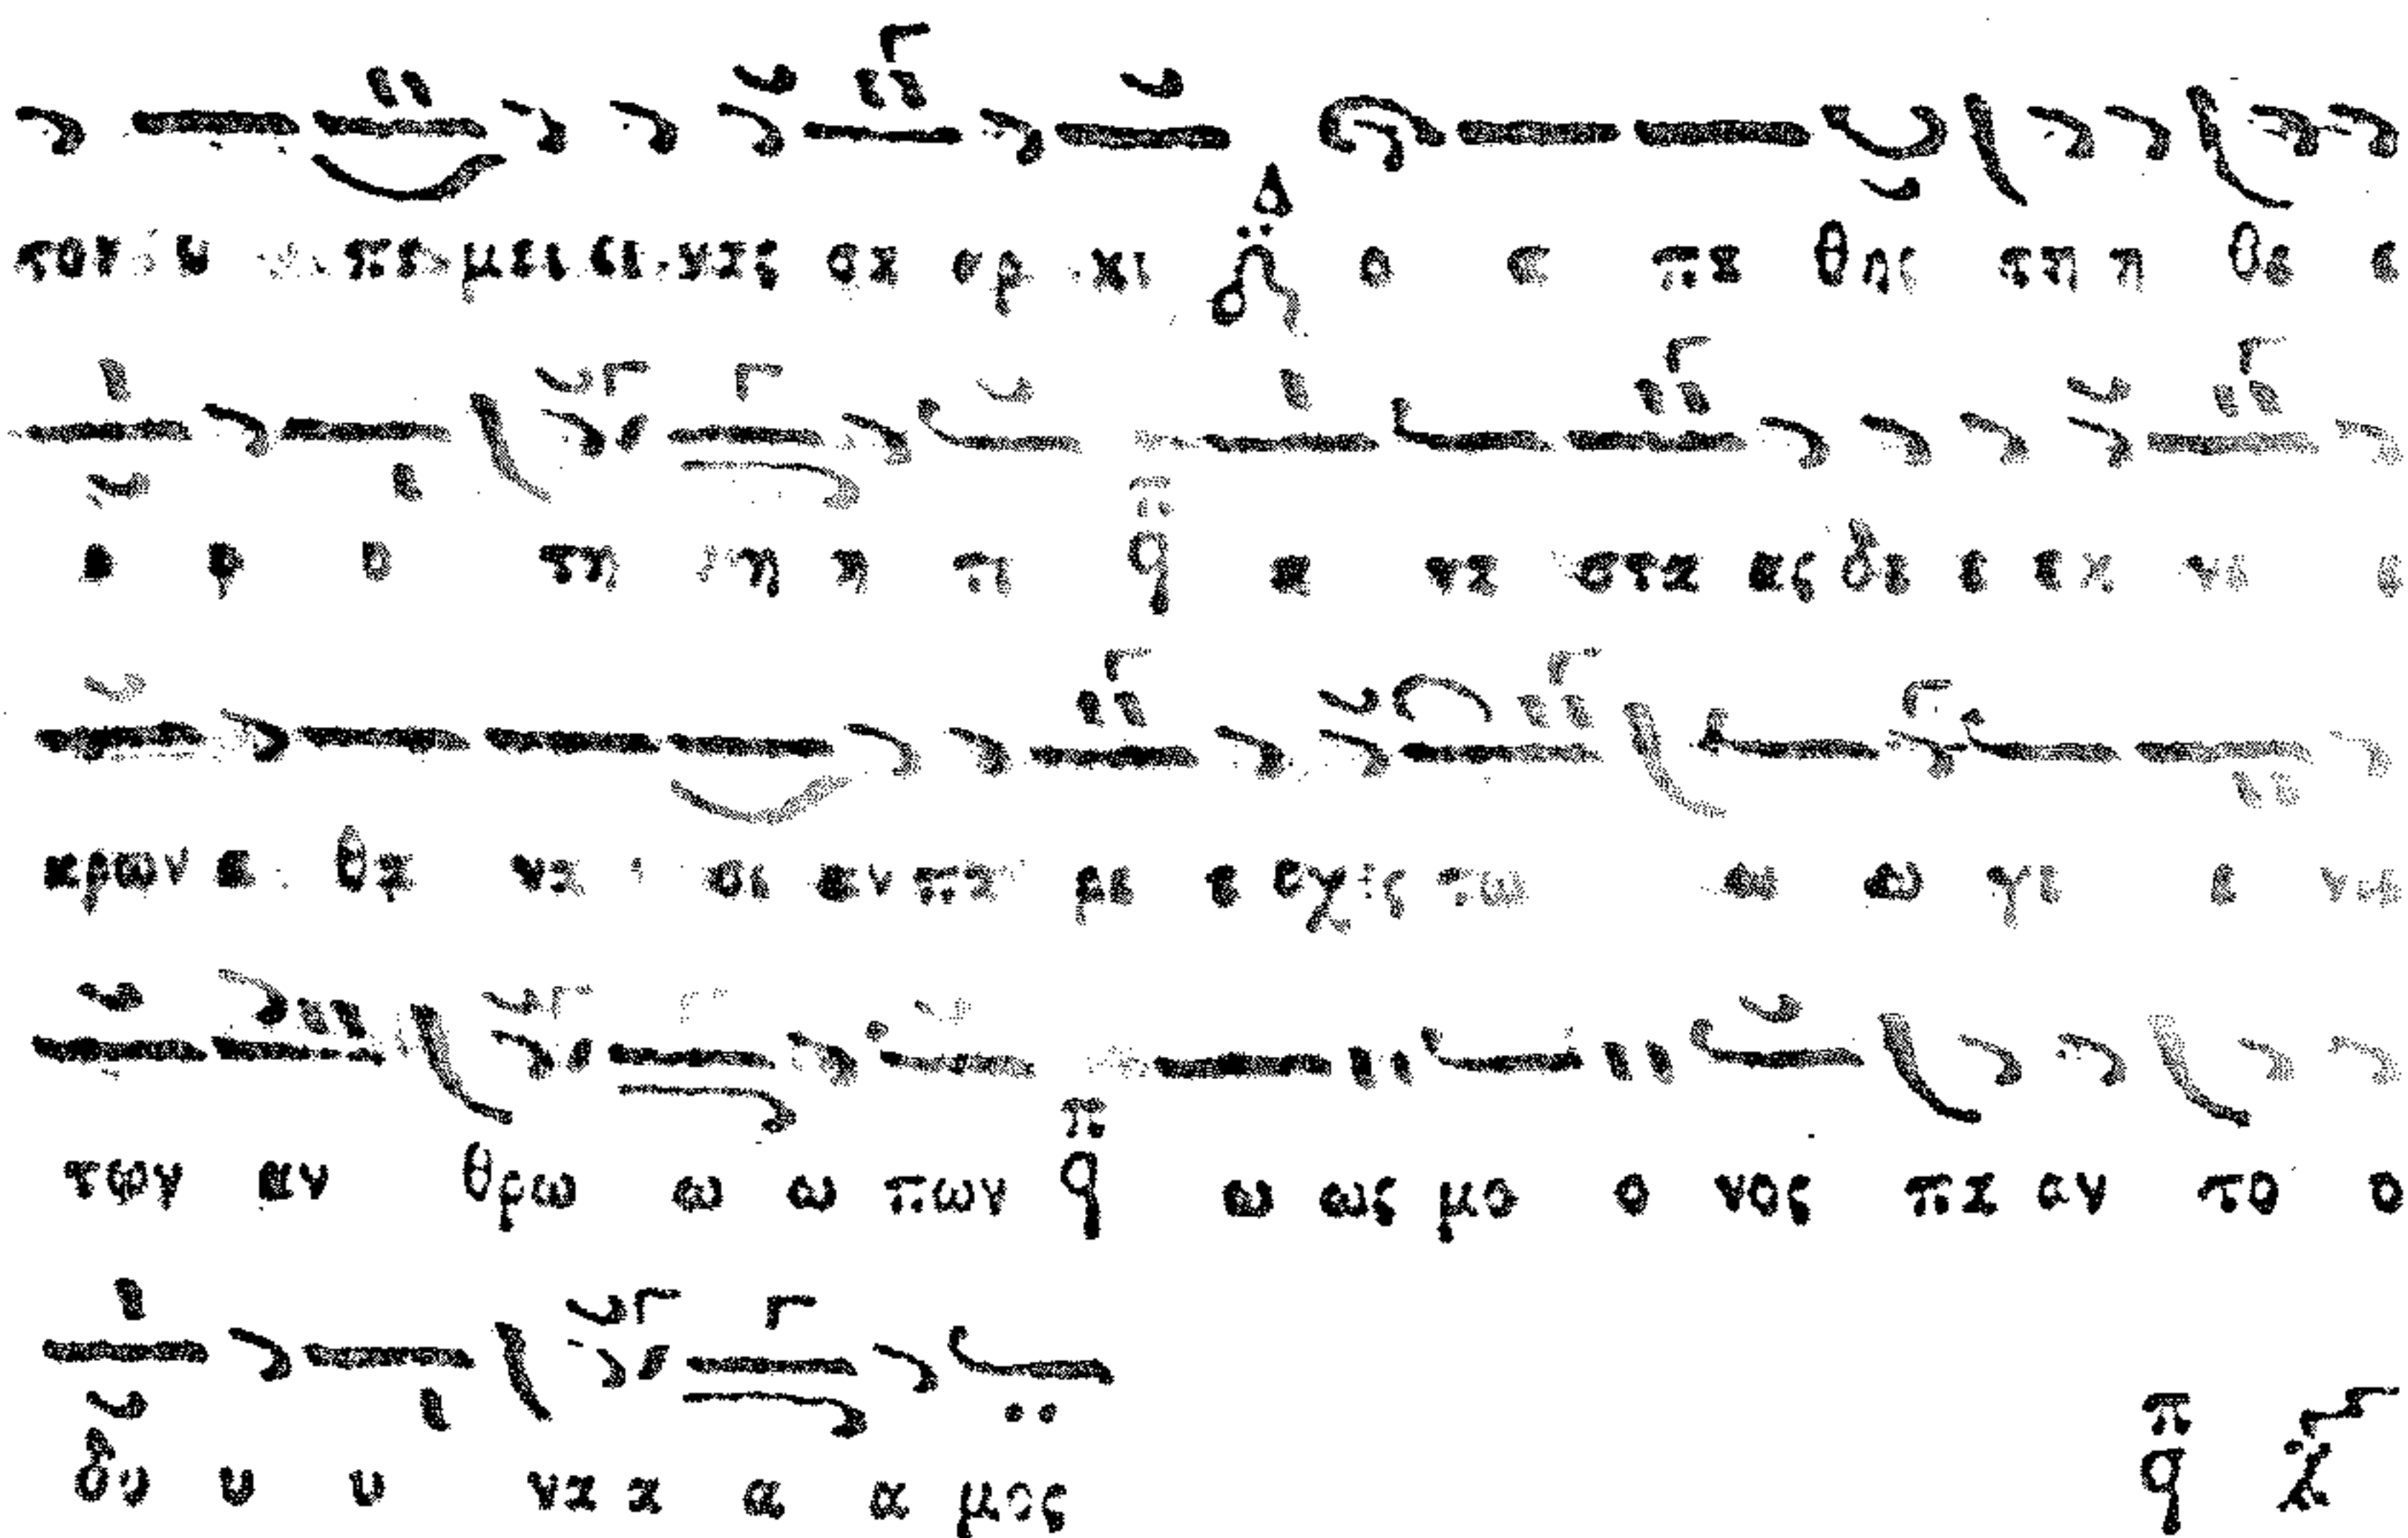 τον υ πε μει ει νας σα αρ κι ο α πα θης τη η θε ε
ο ο ο τη η η τι α να στα ας δε ε εκ νε ε
κρων α θα να σι αν πα ρε ε σχες τω ω ω γε ε νει
των αν θρω ω ω πων ω ως μο ο νος πα αν το ο
δυ υ υ να α α α μος